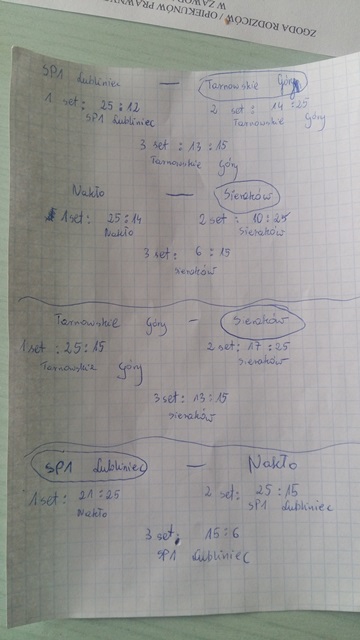 ZGODA RODZICÓW / OPIEKUNÓW
W ZAWO
SP1 Lubliniec — Tarnowskie Góry
1 set: 25:12 2 set: 14:25
SP1 Lubliniec Tarnowskie Góry
3 set: 13:15
Tarnowskie Góry
Nakło — Sieraków
1 set: 25:14 2 set: 10:25
Nakło Sieraków
3 set: 6:15
Sieraków
Tarnowskie Góry – Sieraków
1 set: 25:15 2 set: 17:25
Tarnowskie Góry Sieraków
3 set: 13:15
Sieraków
SP1 Lubliniec — Nakło
1 set: 21:25 2 set: 25:15
Nakło SP1 Lubliniec
3 set: 15:6
SP1 Lubliniec